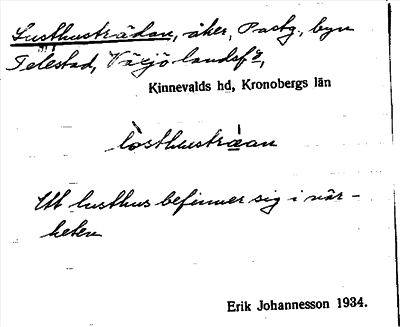 Lusthusträdan, åker, Pastg, byn
Telestad, Växjö landsf.,
Kinnevalds hd, Kronobergs län
losthusträan
Ett lusthus befinner sig i när-
heten
Erik Johannesson 1934.